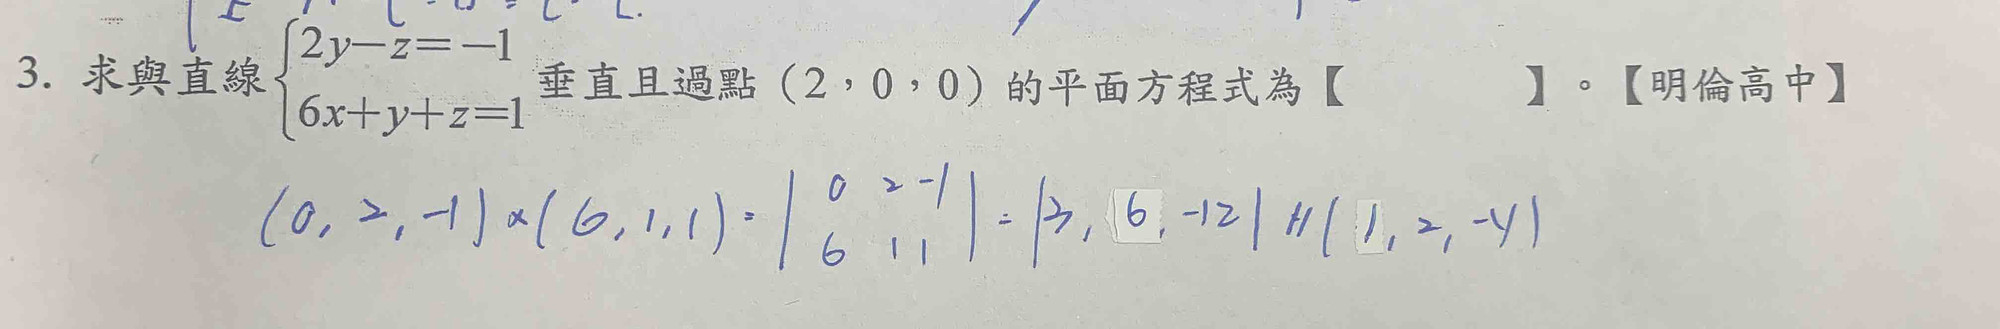 3. 求與直線{2y−z=−1 垂直且過點(2,0,0)的平面方程式為【　　　】。【明倫高中】
6x+y+z=1
(0, 2, -1) × (6, 1, 1) = | 0 2 -1 | = |3, 6, -12| // (1, 2, -4)
6 1 1